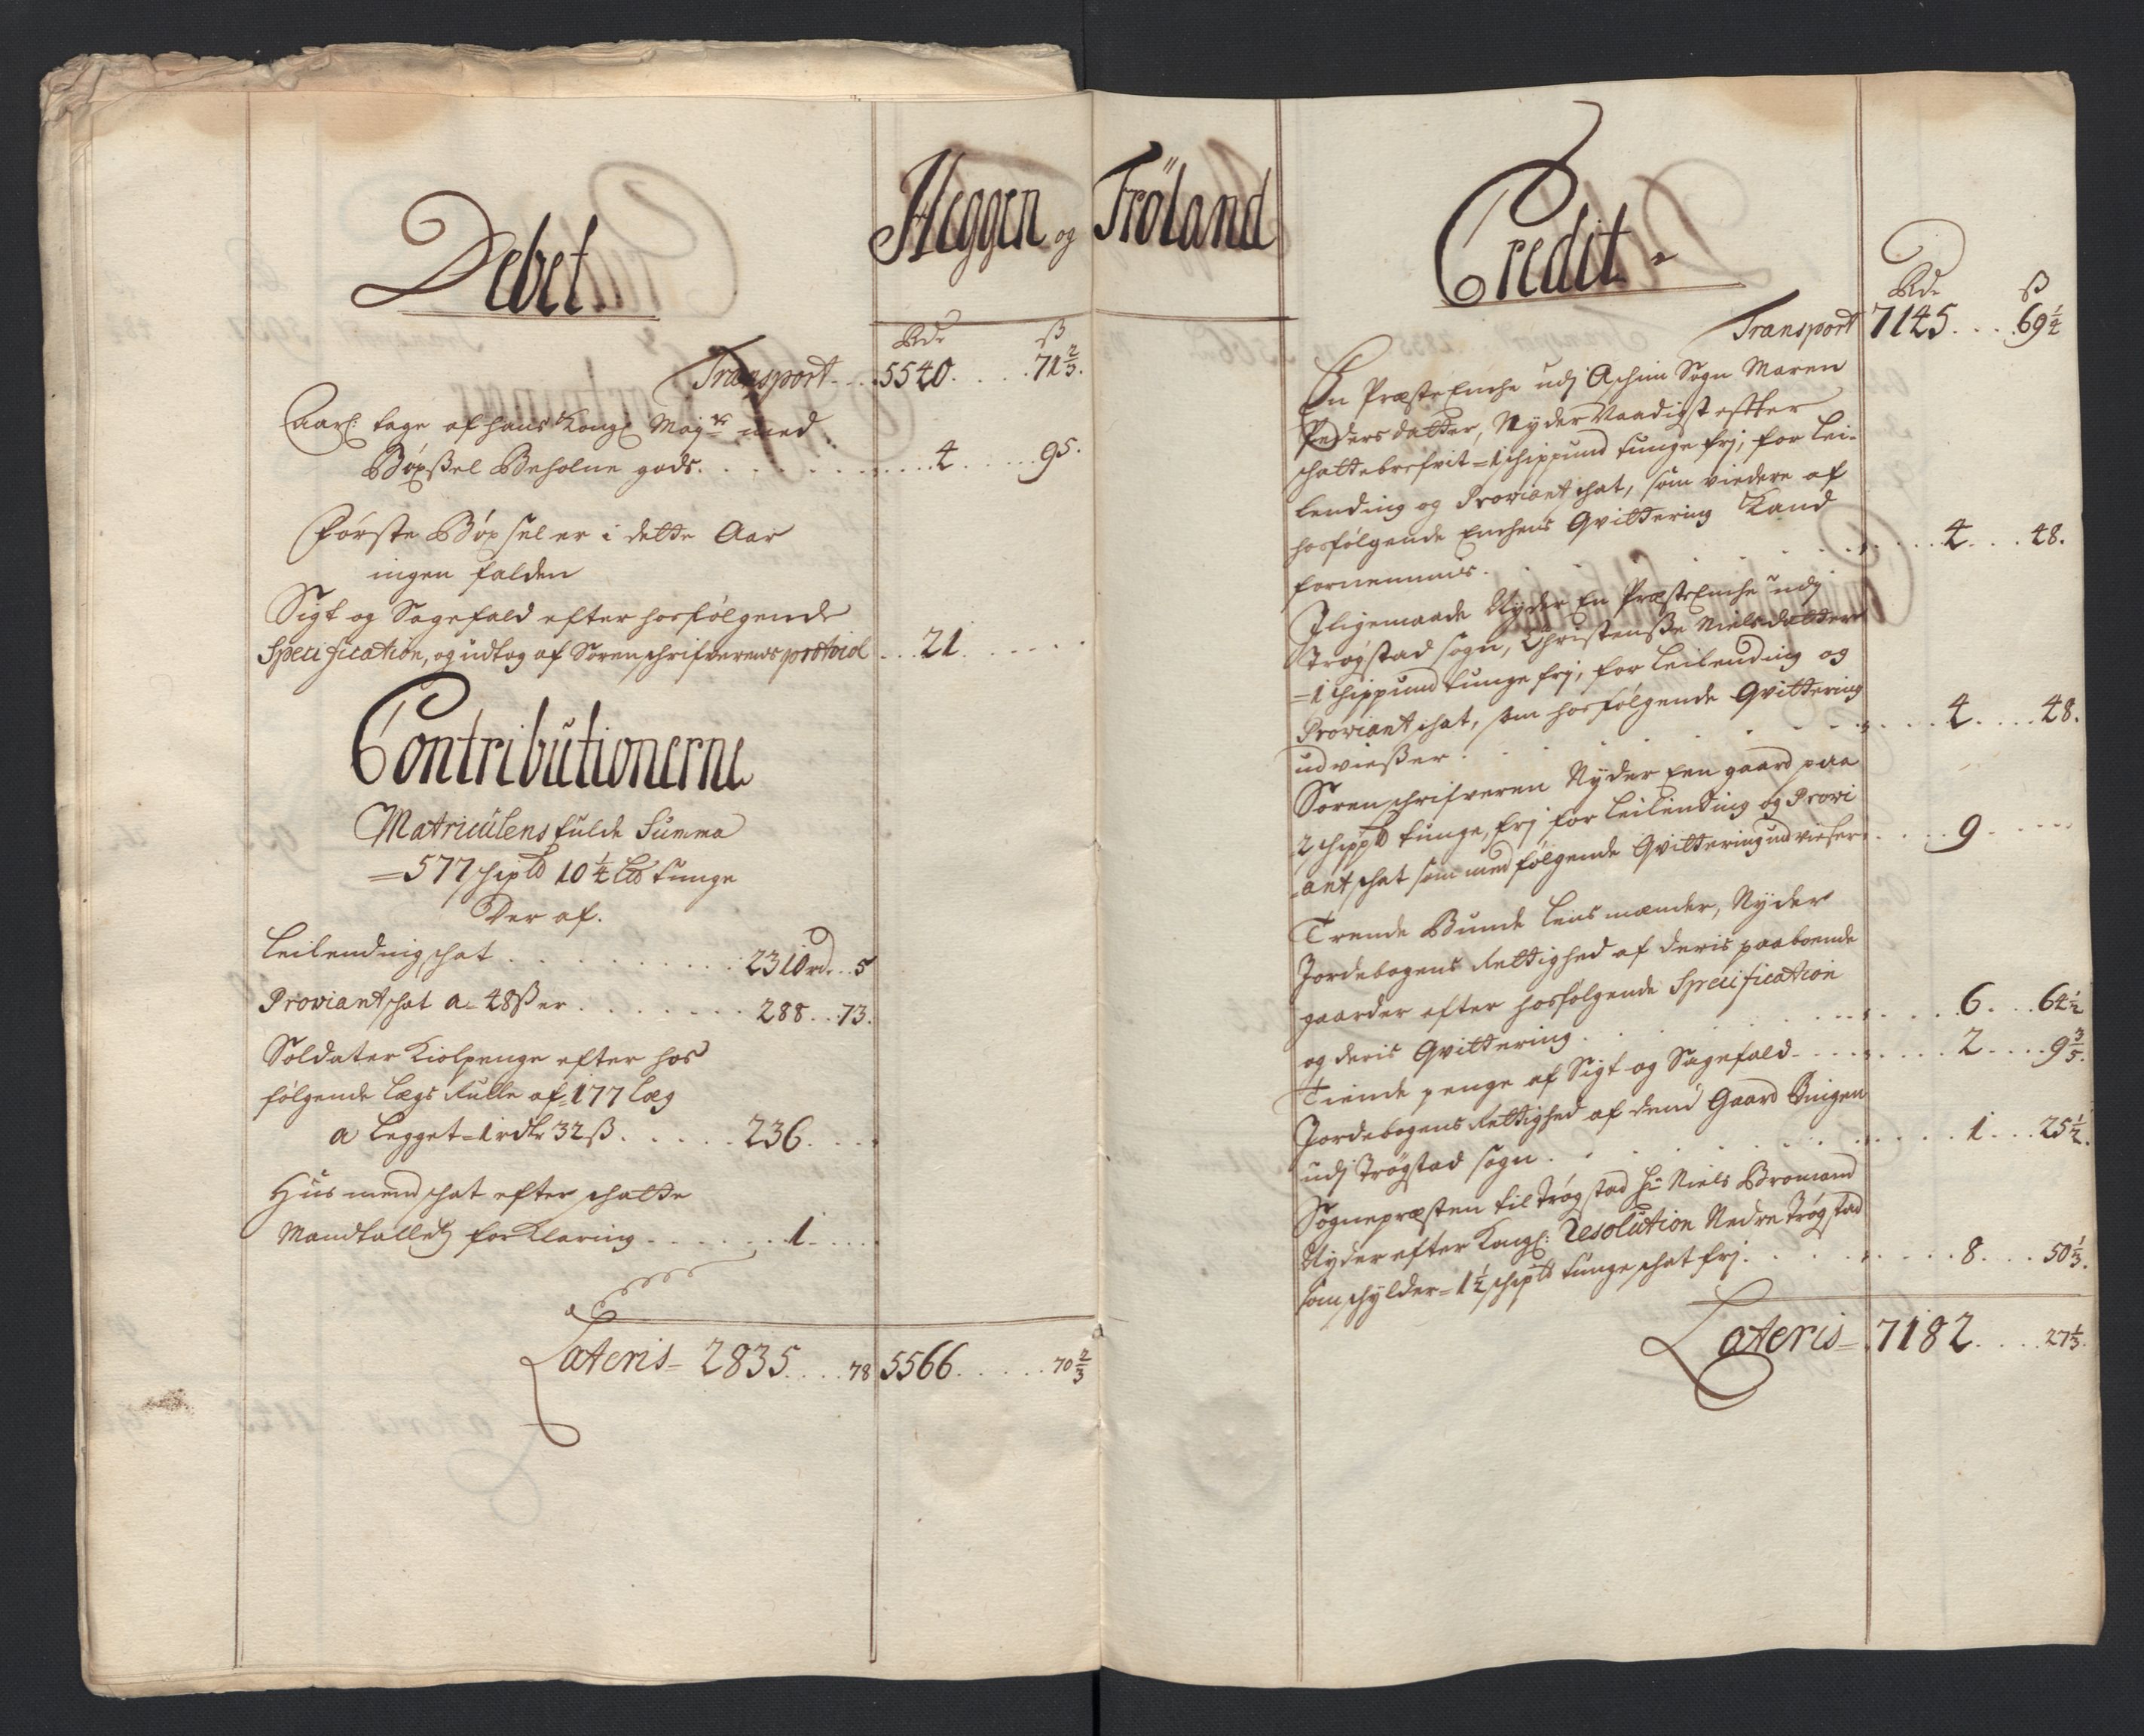 Debet
Heggen og
Rdr ß
Transport 5540 71 2/3
Aarl: tage af hans Kongl Mayts med
Böxßel Beholne gods 4 95
Förste Böxsel er i dette Aar
ingen falden
Sigt og Sagefald efter hosfølgende
Specification, og udtog af Sorenschrifverens protocol 21
Contributionerne
Matriculens fulde Summa
=577 schipld 10 1/4 Lld tunge
Der af.
Leilendingschat 2310 rd 5
Proviantschat a 48 ß er 288 73
Soldater Kiolpenge efter hos
følgende Lægs Rulle af 177 Læg
a Legget=1 rdlr 32 ß 236
Husmend schat efter schatte
Mandtallets forKlaring 1
Lateris= 2835 78 5566 70 2/3
Tröland
Credit
Rdr ß
Transport 7145 69 1/4
En Præste Enche udj Aschim Sogn Maren
Peders datter, Nyder Naadigst effter
schattebrefvit=1 schippund tunge frj, for Lei-
lending og Proviant schat, som viedere af
hosfølgende Enchens Qvittering Kand
fornemmis 4 48
Iligemaade Nyder En Præste Enche udj
Trøgstad sogn, Christenße Nielsdatter
=1 schippund tunge frj, for Leilending og
Proviant schat, som hosfølgende Qvittering
udvießer 4 48
Sorenschrifveren Nyder Een gaard paa
2 schippd tunge, frj for Leilending og Provi
antschat som med følgende Qvittering udvieser 9
Trende Bunde Lensmænder, Nyder
Jordebogens Rettighed af deris paaboende
gaarder efter hosfølgende Specification
og deris Qvittering 6 64 1/2
Tiende penge af Sigt og Sagefald 2 9 3/5
Jordebogens Rettighed af dend Gaard
udj Trøgstad sogn 1 25 1/2
Sognepræsten til Trøgstad Hr Niels Bromand
Nyder efter Kongl: Resolution Nedre Trøgstad
som schylder=1 1/2 schipld tunge schat frj 8 50 1/3
Lateris= 7182 27 1/3